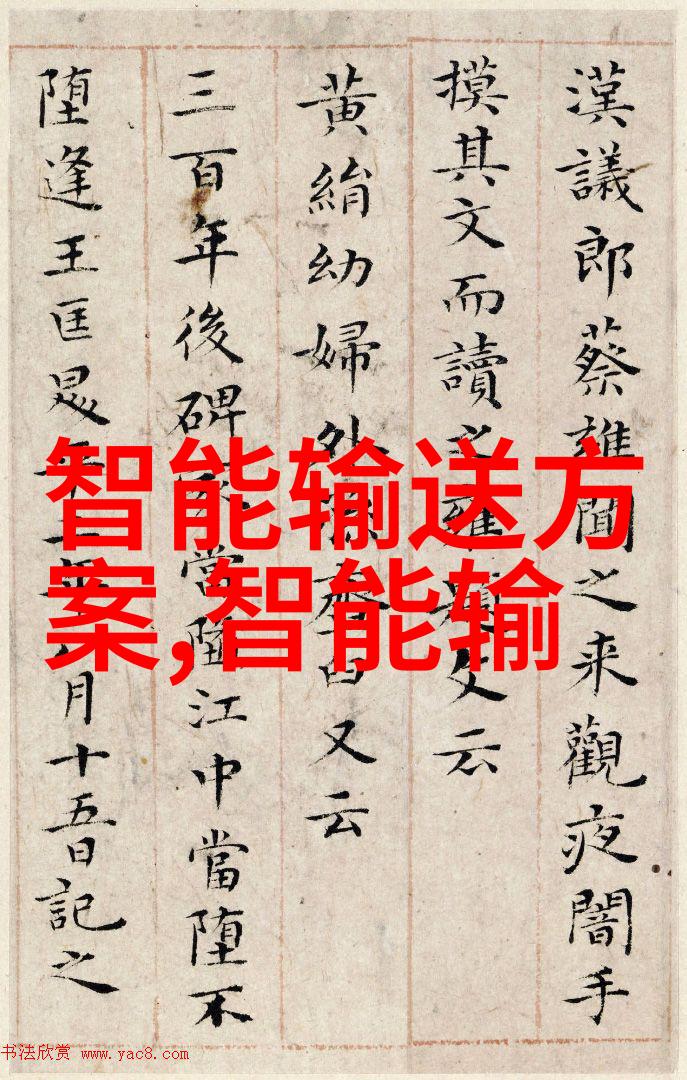 漢議郎蔡雍聞之来觀夜闇手
摸其文而讀之雍題文云
黄絹幼婦外孫臼又云
三百年後碑當堕江中當堕不
堕逢王匡二年八月十五日記之
智能输送方
案,智能输
书法欣赏 www.yac8.com